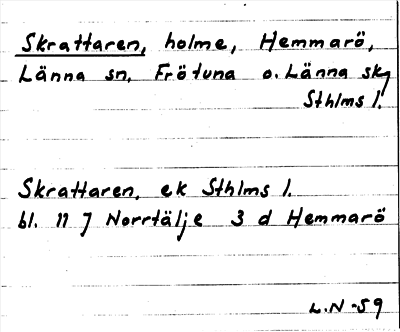 Skrattaren, holme, Hemmarö,
Länna sn, Frötuna o. Länna skg
Sthlms l.
Skrattaren, ek Sthlms l.
bl. 11 J Norrtälje 3 d Hemmarö
L.N -59